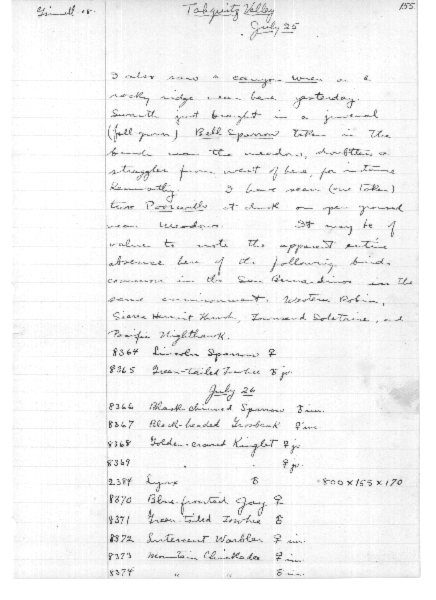 Grinnell - 08.
Tahquitz Valley
155
July 25
I also saw a canyon wren on a
rocky ridge near here yesterday.
just brought in a juvenal
(full grown) Bell Sparrow taken in the
brush near the meadow, doubtless a
straggler from west of here, for instance
I have seen (one taken)
two Poorwills at dusk on open ground
near meadows. It may be of
value to note the apparent entire
absence here of the following birds
common in the San Bernardinos in the
same environment. Western Robin,
Sierra Hermit Thrush, Townsend Solitaire, and
Pacific Nighthawk.
8364 Lincoln Sparrow ♀
8365 Green-tailed Towhee ♂ jv.
July 26
8366 Black-chinned Sparrow ♂ im.
8367 Black-headed Grosbeak ♂ im.
8368 Golden-crowned Kinglet ♀ jv.
8369 " " ♀ jv.
2384 Lynx ♂ 800 x 155 x 170
8370 Blue-fronted Jay ♀
8371 Green-tailed Towhee ♂
8372 Lutescent Warbler ♀ im.
8373 Mountain Chickadee ♀ im.
8374 " " ♂ im.